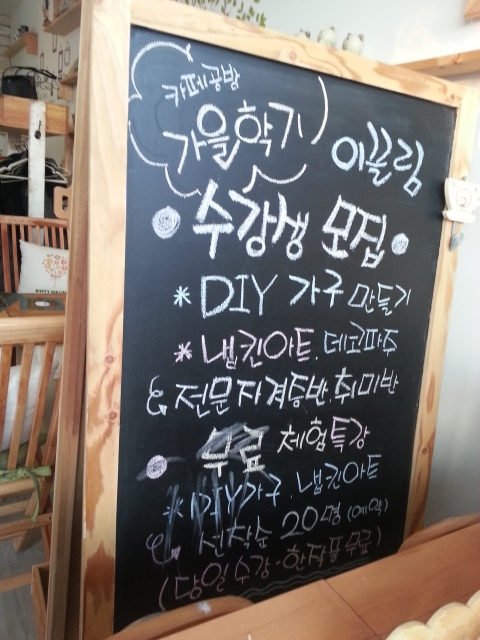 카페공방
가을학기
이끌림
수강생 모집
* DIY 가구 만들기
* 냅킨아트. 데코파주
& 전문자격증반. 취미반
무료 체험특강
* DIY가구. 냅킨아트
선착순 20명 (예약)
(당일수강 - 한작품 무료)